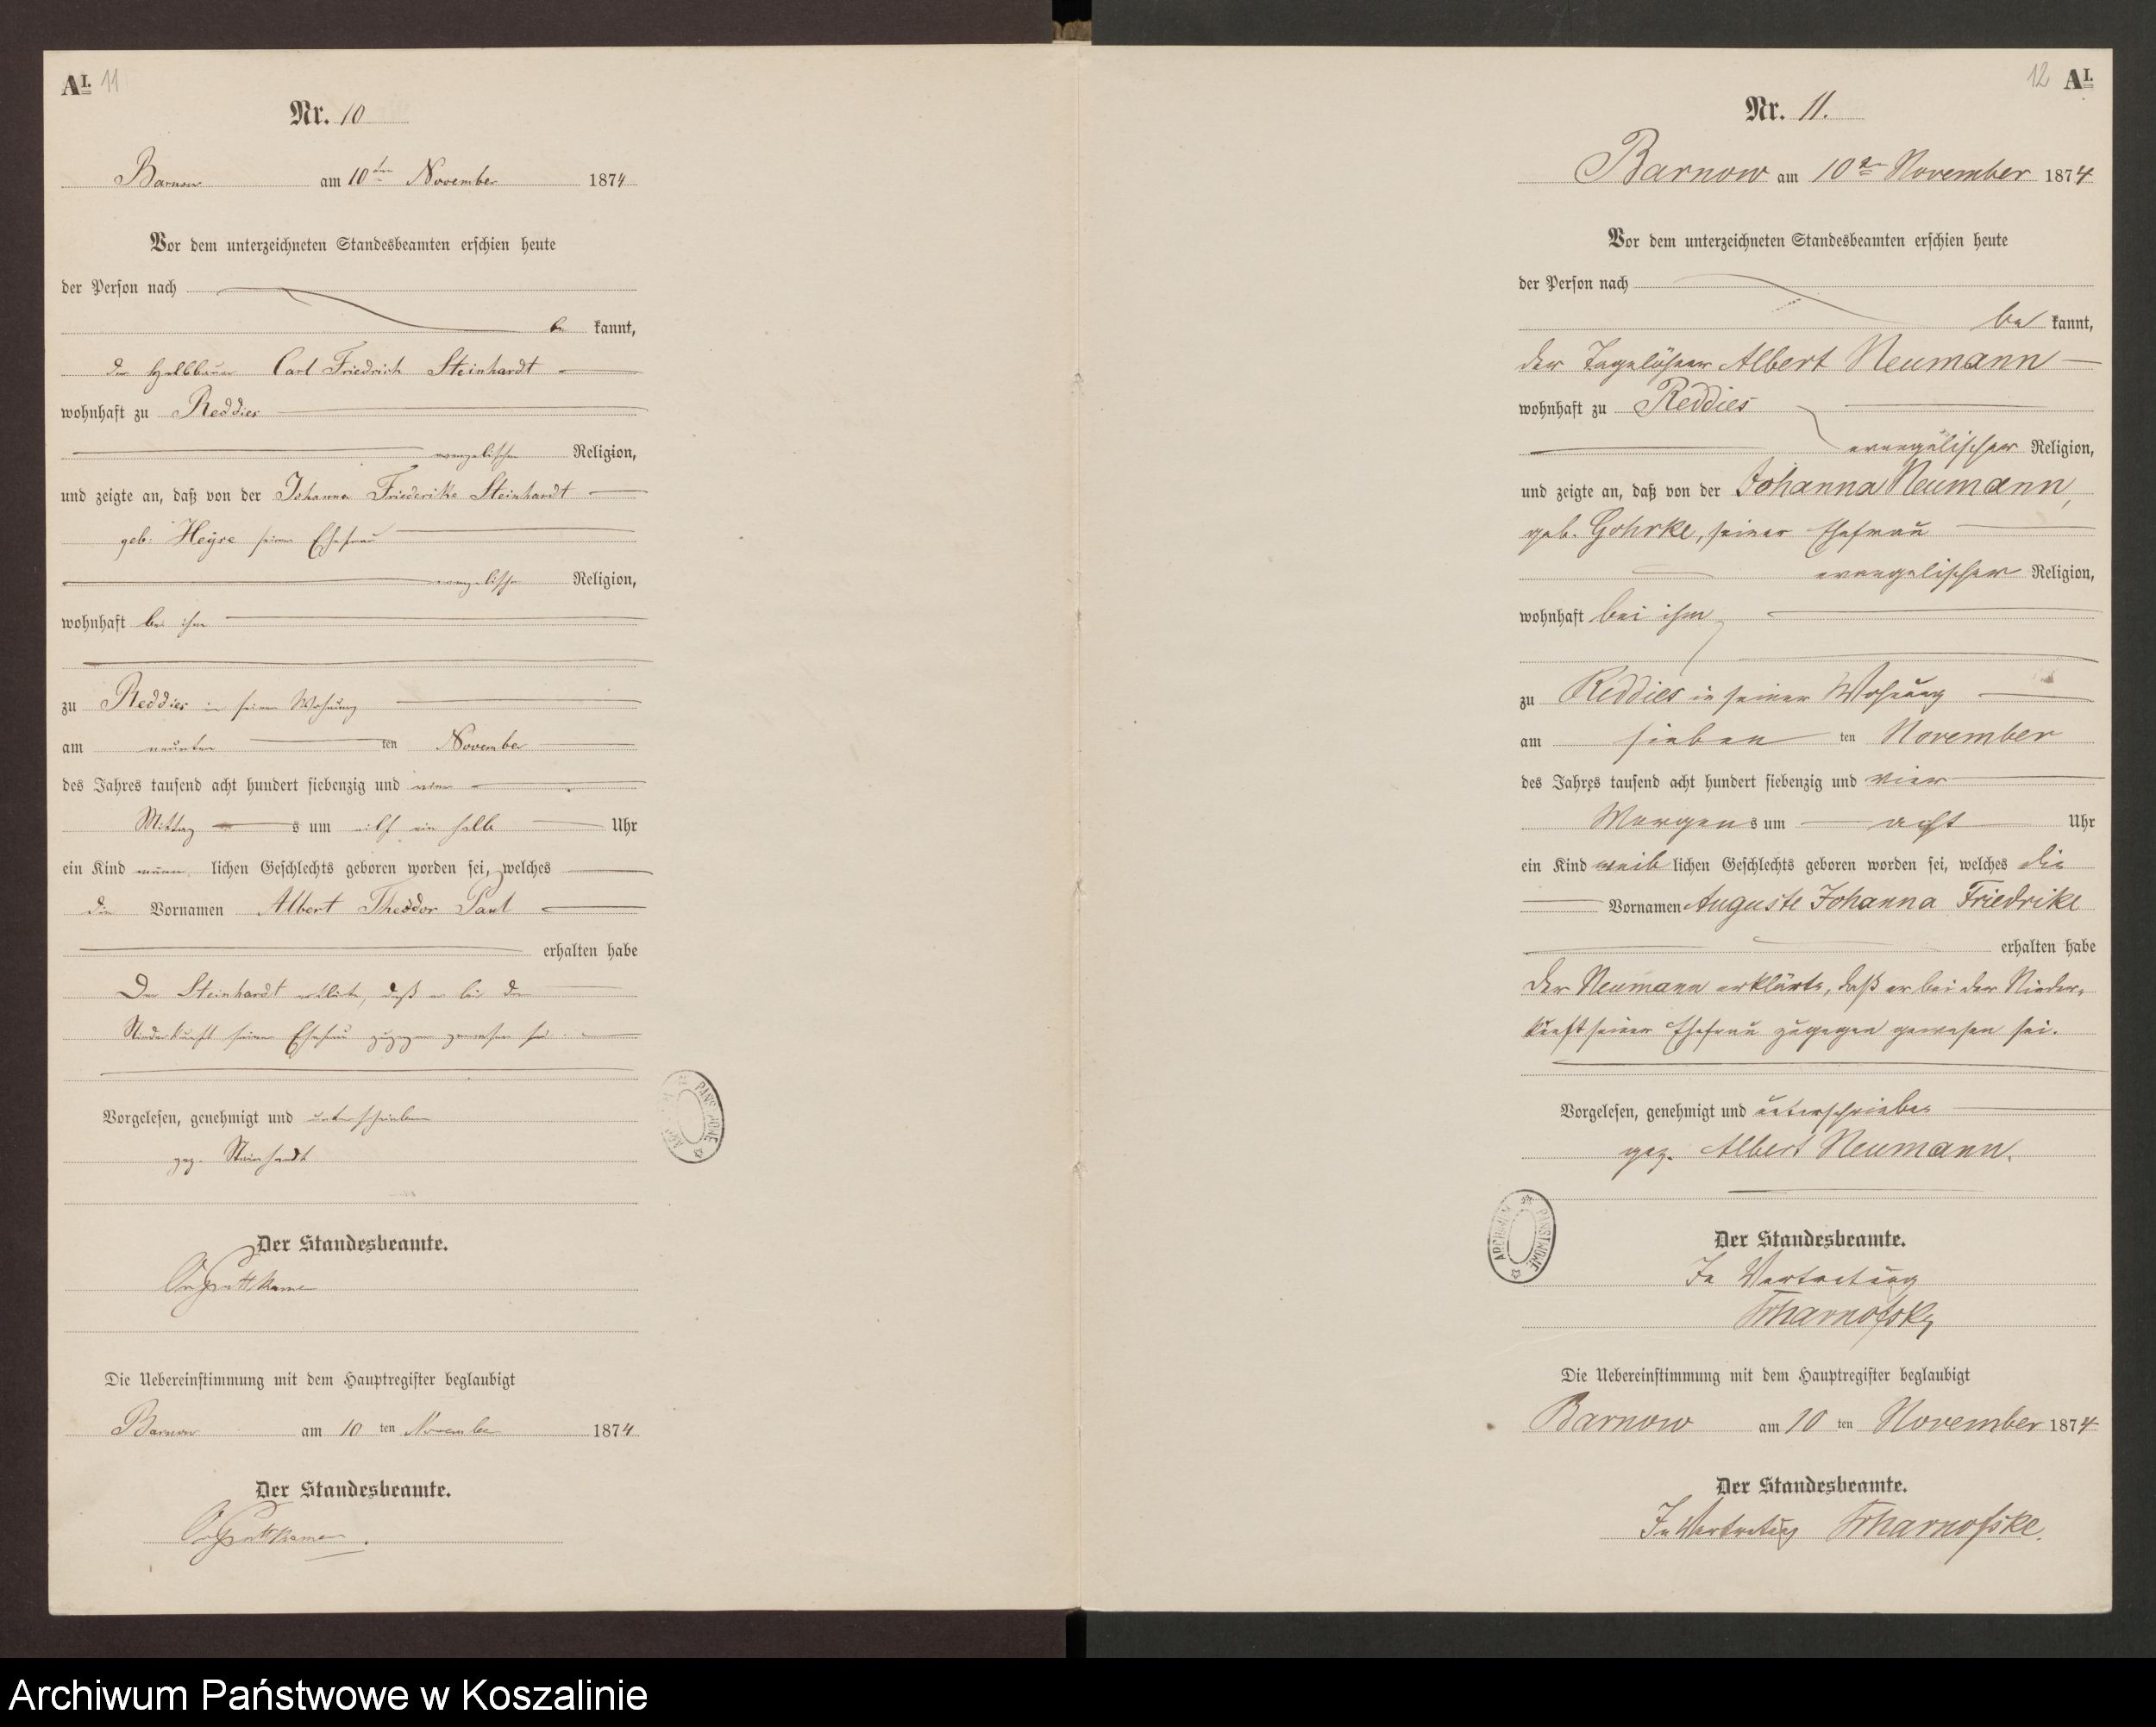 AI. 11
Nr. 10
Barnow am 10ten November 1874
Vor dem unterzeichneten Standesbeamten erschien heute
der Person nach
be kannt,
der Halbbauer Carl Friedrich Steinhardt
wohnhaft zu Reddies
evangelischer Religion,
und zeigte an, daß von der Johanna Friederike Steinhardt
geb. Heyse seiner Ehefrau
evangelischer Religion,
wohnhaft bei ihm
zu Reddies in seiner Wohnung
am neunten ten November
des Jahres tausend acht hundert siebenzig und vier
Mittag s um ein halb Uhr
ein Kind männ lichen Geschlechts geboren worden sei, welches
die Vornamen Albert Theodor Paul
erhalten habe
Der Steinhardt erklärte, daß er bei der
Niederkunft seiner Ehefrau zugegen gewesen sei.
Vorgelesen, genehmigt und unterschrieben
gez. Steinhardt
Der Standesbeamte.
Puttkamer
Die Uebereinstimmung mit dem Hauptregister beglaubigt
Barnow am 10 ten November 1874
Der Standesbeamte.
Puttkamer
12 AI.
Nr. 11.
Barnow am 10ten November 1874
Vor dem unterzeichneten Standesbeamten erschien heute
der Person nach
be kannt,
der Tagelöhner Albert Neumann
wohnhaft zu Reddies
evangelischer Religion,
und zeigte an, daß von der Johanna Neumann,
geb. Gohrke, seiner Ehefrau
evangelischer Religion,
wohnhaft bei ihm
zu Reddies in seiner Wohnung
am sieben ten November
des Jahres tausend acht hundert siebenzig und vier
Morgen s um acht Uhr
ein Kind weib lichen Geschlechts geboren worden sei, welches die
Vornamen Auguste Johanna Friedrike
erhalten habe
Der Neumann erklärte, daß er bei der Nieder-
kunft seiner Ehefrau zugegen gewesen sei.
Vorgelesen, genehmigt und unterschrieben
gez. Albert Neumann.
ARCHIWUM PAŃSTWOWE
Der Standesbeamte.
In Vertretung
Die Uebereinstimmung mit dem Hauptregister beglaubigt
Barnow am 10 ten November 1874
Der Standesbeamte.
In Vertretung
Archiwum Państwowe w Koszalinie